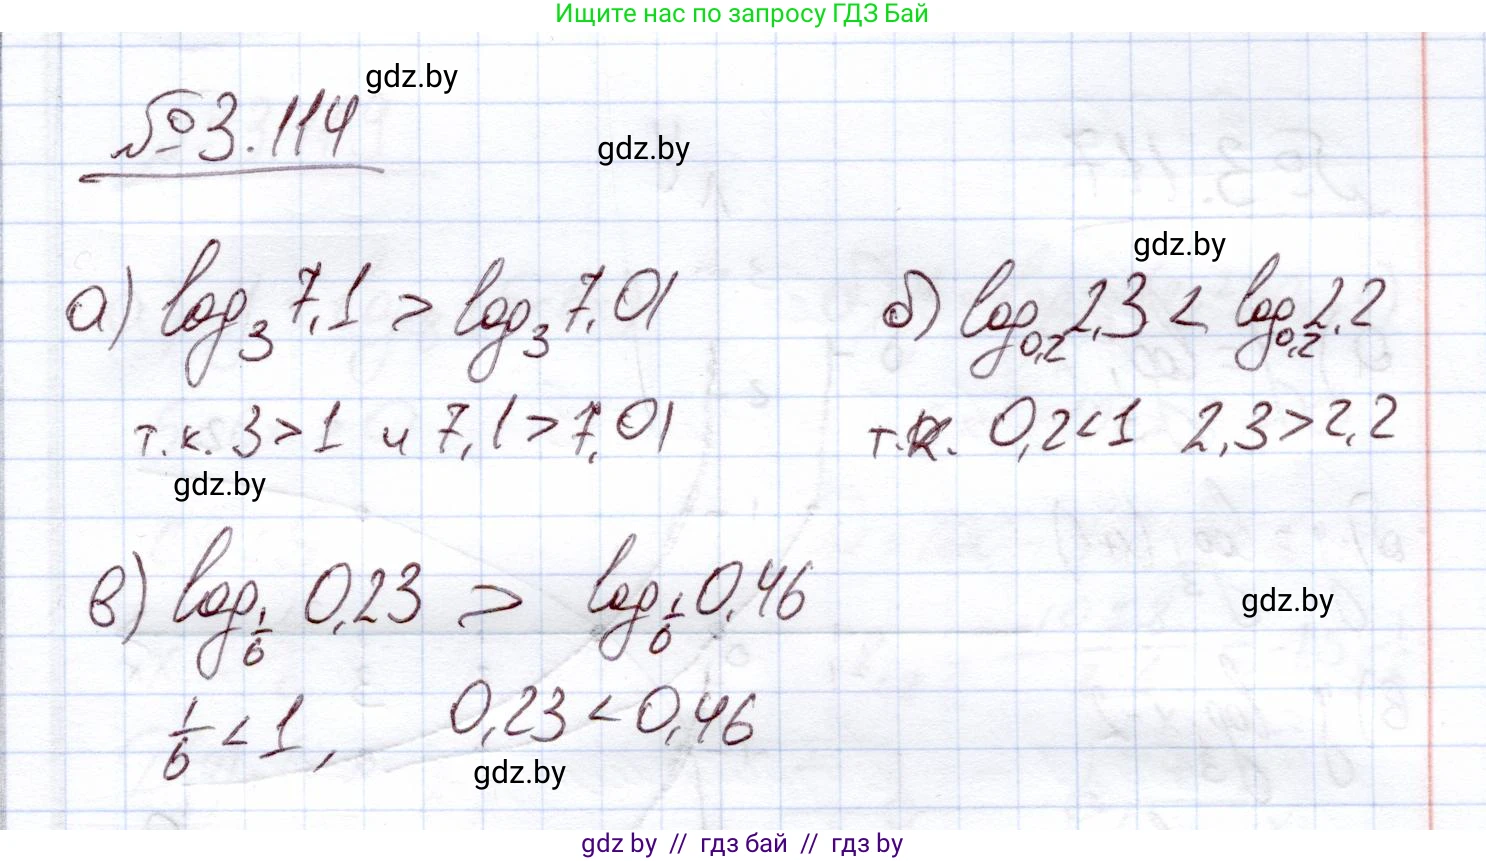 Ищите нас по запросу ГДЗ Бай
gdz.by
№ 3.114
gdz.by
gdz.by
а) log₃ 7,1 > log₃ 7,01
б) log₀,₂ 2,3 < log₀,₂ 2,2
т.к. 3 > 1 и 7,1 > 7,01
т.к. 0,2 < 1 2,3 > 2,2
gdz.by
в) log_{1/6} 0,23 > log_{1/6} 0,46
gdz.by
1/6 < 1, 0,23 < 0,46
gdz.by
gdz.by // гдз бай // гдз by